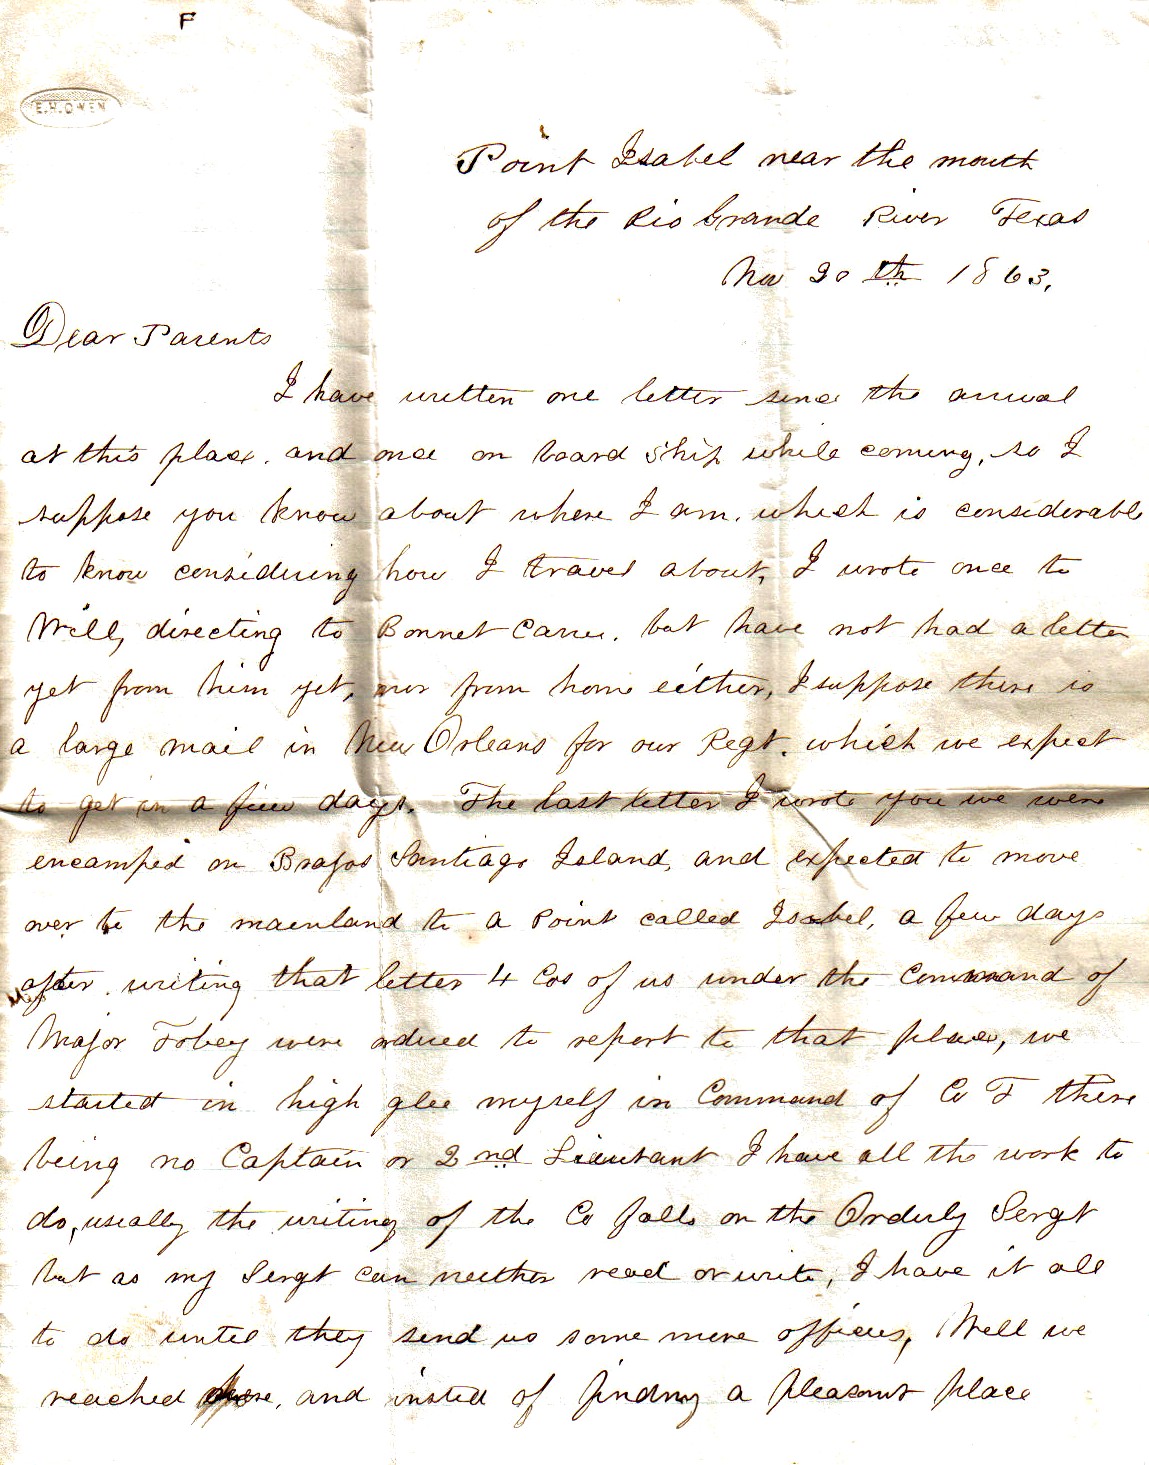 F
E.H.OWEN
Point Isabel near the mouth
of the Rio Grande River Texas
Nov 20th 1863.
Dear Parents
I have written one letter since the arrival
at this place, and once on board ship while coming, so I
suppose you know about where I am, which is considerable
to know considering how I travel about, I wrote once to
Will, directing to Bonnet Carre, but have not had a letter
yet from him yet, nor from home either, I suppose there is
a large mail in New Orleans for our Regt. which we expect
to get in a few days. The last letter I wrote you we were
encamped on Brasos Santiago Island, and expected to move
over to the mainland to a Point called Isabel, a few days
after writing that letter 4 Cos of us under the Command of
Major Tobey were ordered to report to that place, we
started in high glee myself in Command of Co F there
being no Captain or 2nd Lieutant I have all the work to
do, usually the writing of the Co falls on the Orderly Sergt
but as my Sergt can neither read or write, I have it all
to do until they send us some more officers, Well we
reached and insted of finding a pleasant place